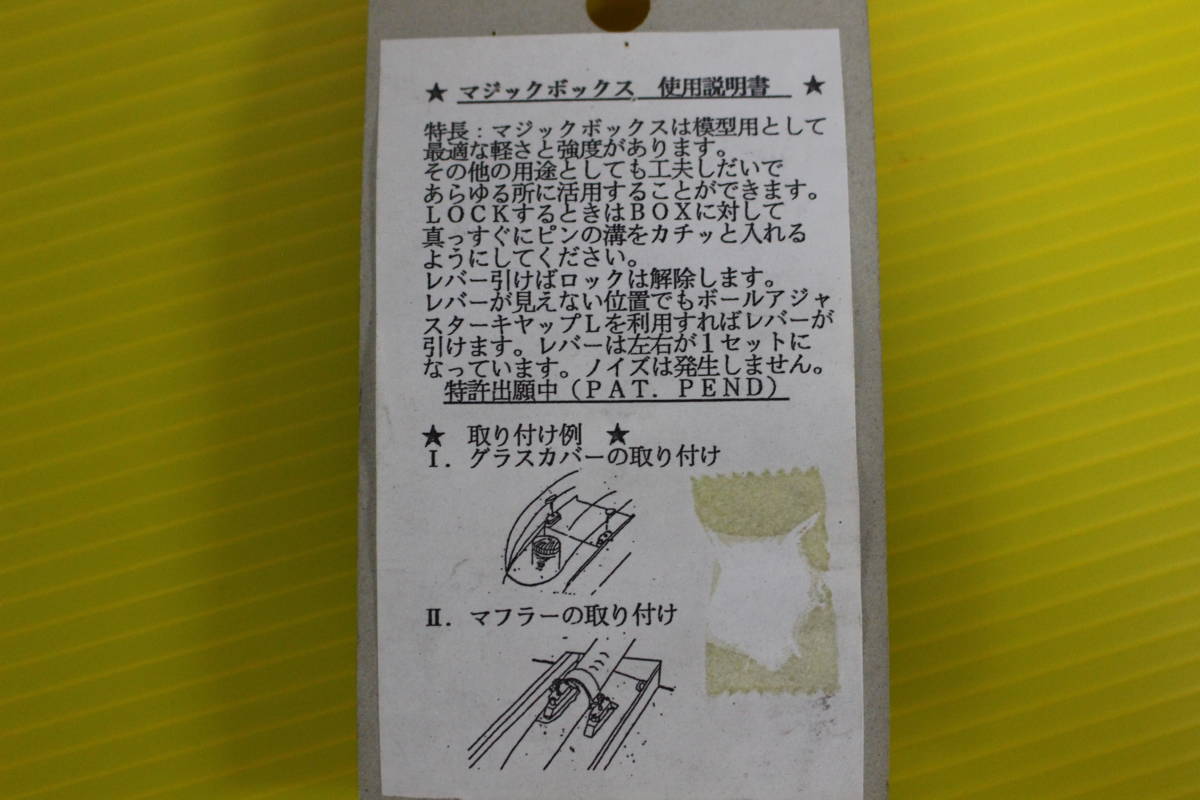 ★ マジックボックス 使用説明書 ★
特長：マジックボックスは模型用として
最適な軽さと強度があります。
その他の用途としても工夫しだいで
あらゆる所に活用することができます。
ＬＯＣＫするときはＢＯＸに対して
真っすぐにピンの溝をカチッと入れる
ようにしてください。
レバー引けばロックは解除します。
レバーが見えない位置でもボールアジャ
スターキヤップＬを利用すればレバーが
引けます。レバーは左右が１セットに
なっています。ノイズは発生しません。
特許出願中（ＰＡＴ．ＰＥＮＤ）
★ 取り付け例 ★
Ⅰ．グラスカバーの取り付け
Ⅱ．マフラーの取り付け